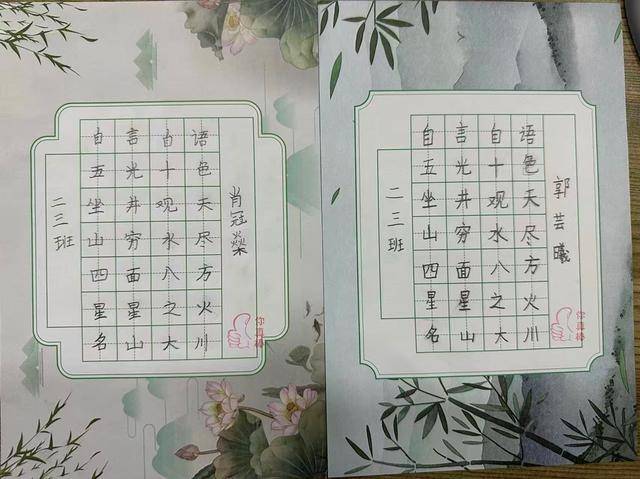 自言自语
五光十色
坐井观天
山穷水尽
四面八方
星星之火
名山大川
二三班
肖冠燊
你真棒
自言自语
五光十色
坐井观天
山穷水尽
四面八方
星星之火
名山大川
二三班
郭芸曦
你真棒